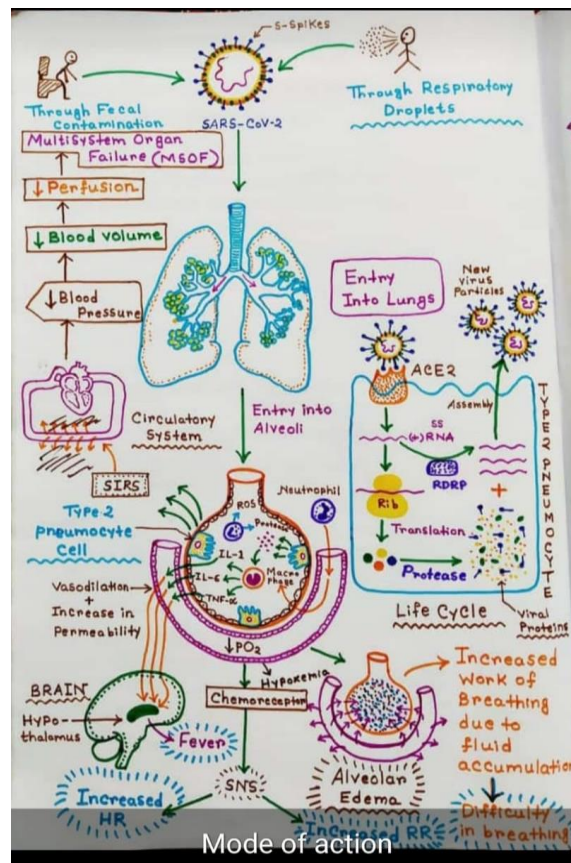 S-Spikes
Through Fecal
Contamination
SARS-CoV-2
Through Respiratory
Droplets
Multisystem Organ
Failure (MSOF)
↓ Perfusion
↓ Blood volume
↓ Blood
Pressure
Circulatory
System
SIRS
Entry
Into Lungs
New
Virus
Particles
ACE2
Assembly
SS
(+)RNA
RDRP
+
Rib
Translation
Protease
Viral
Proteins
TYPE 2 PNEUMOCYTE
Life Cycle
Entry into
Alveoli
Type-2
pneumocyte
Cell
ROS
Protease
Neutrophil
IL-1
IL-6
TNF-α
Macro
phage
Vasodilation
+
Increase in
Permeability
↓PO2
Hypoxemia
Chemoreceptor
BRAIN
Hypo-
thalamus
Fever
SNS
Increased
HR
Increased RR
Alveolar
Edema
Increased
Work of
Breathing
due to
fluid
accumulation
Difficulty
in breathing
Mode of action